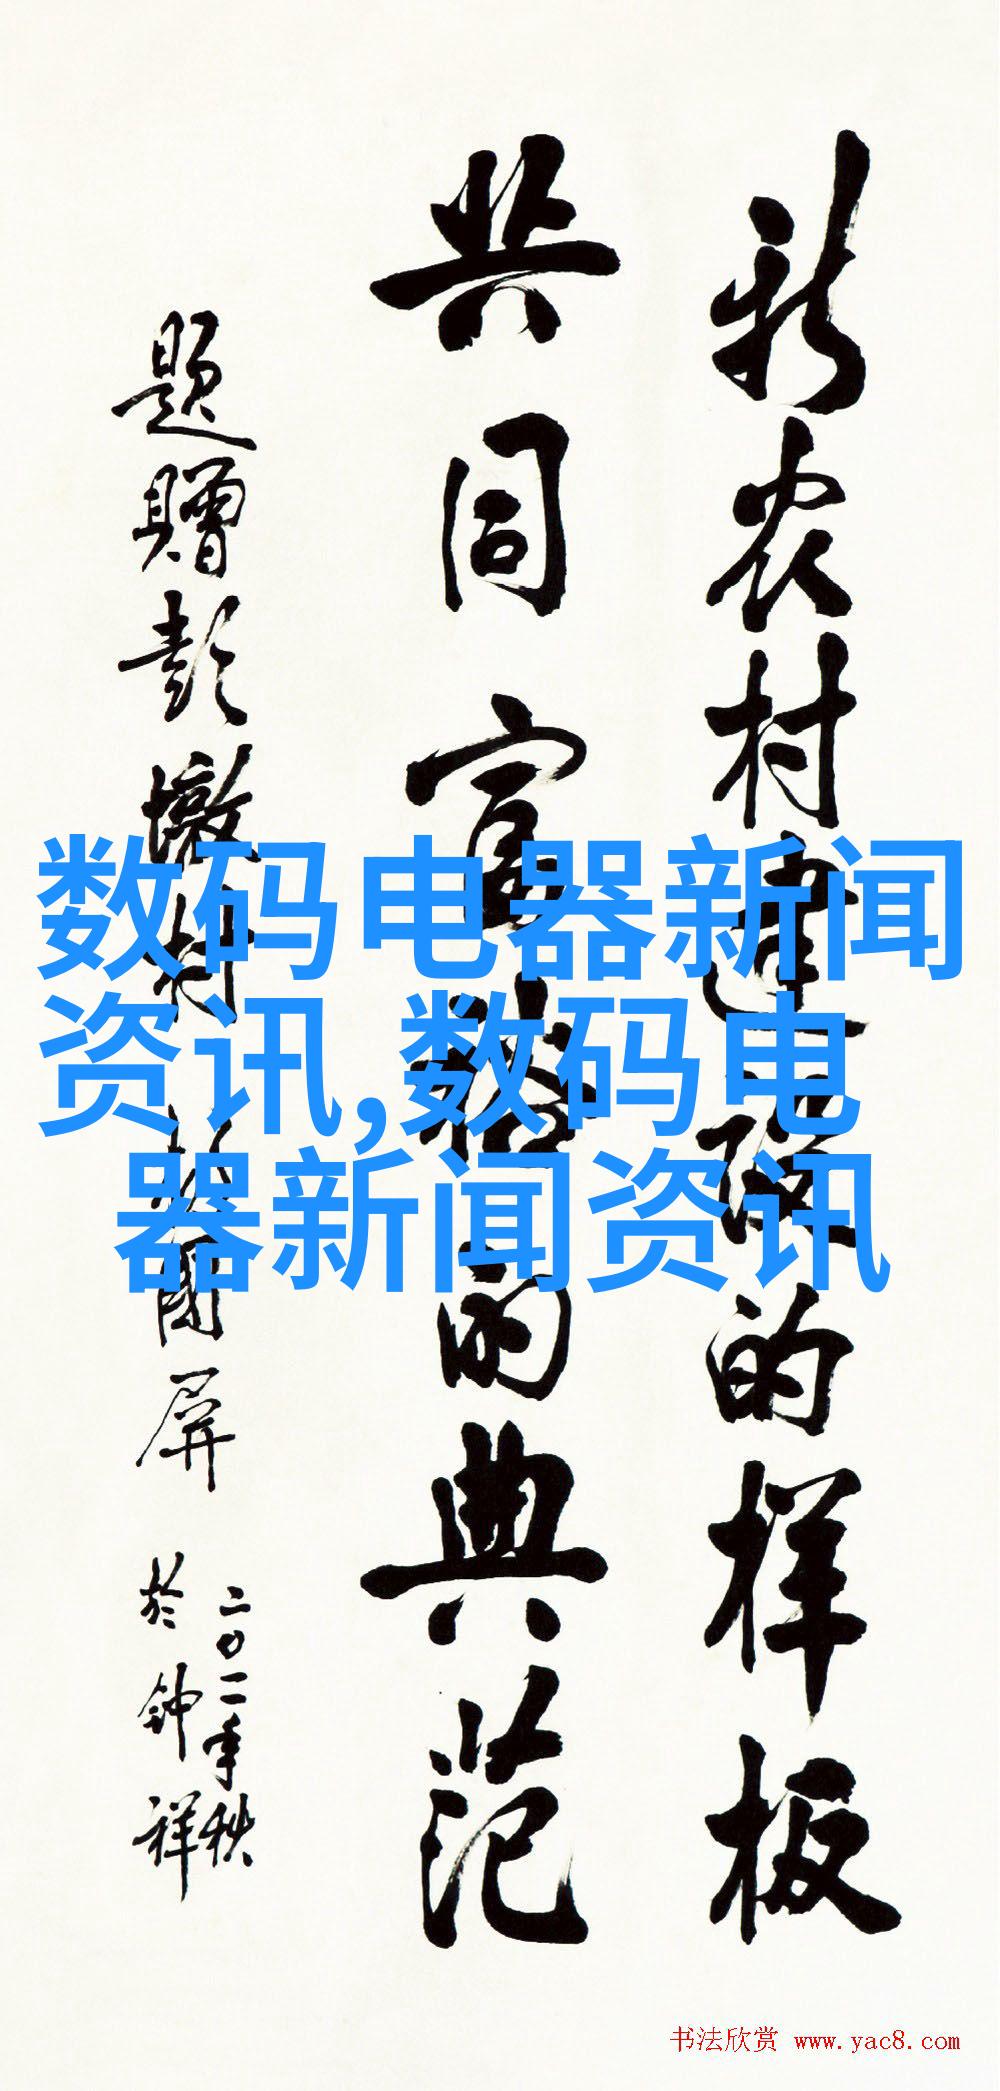 新农村建设的样板
共同富裕的典范
题赠彭墩村 张国屏
二〇一一年秋
於钟祥
数码电器新闻
资讯,数码电
器新闻资讯
书法欣赏 www.yac8.com